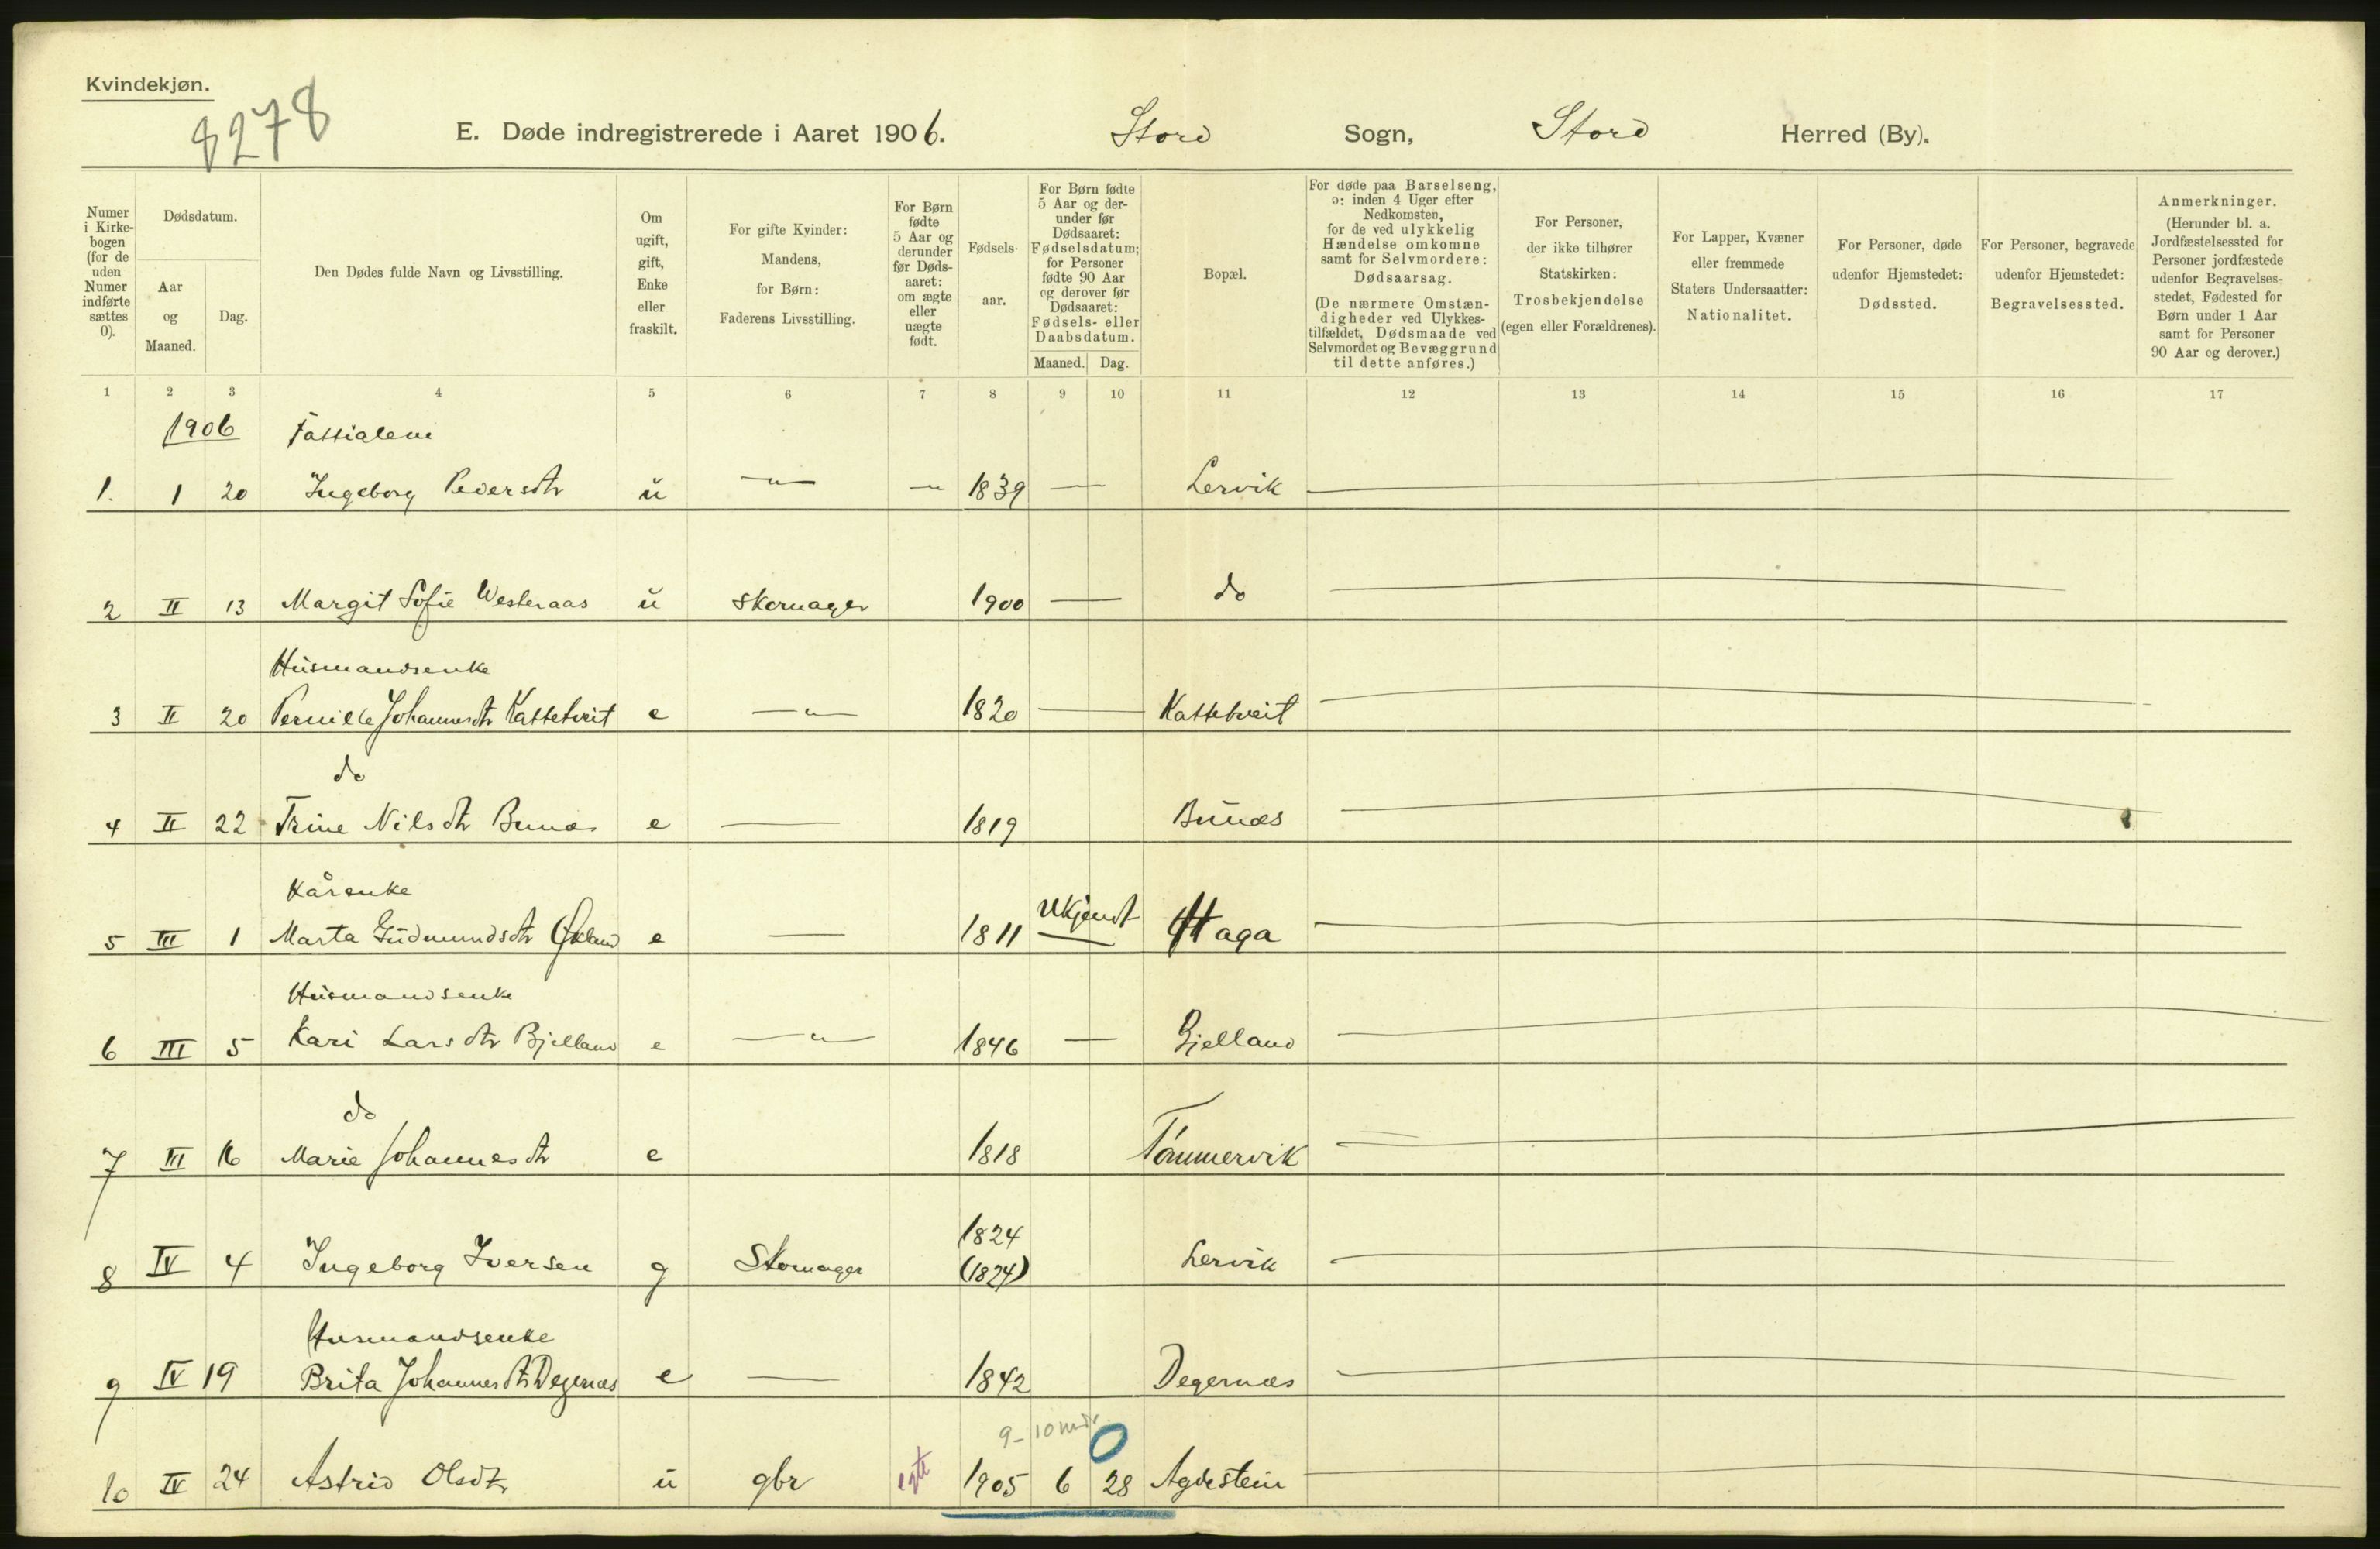 Kvindekjøn.
8278
E. Døde indregistrerede i Aaret 1906. Stord Sogn, Stord Herred (By).
Numer i Kirke-bogen (for de uden Numer indførte sættes 0).
Dødsdatum.
Aar og Maaned.
Dag.
Den Dødes fulde Navn og Livsstilling.
Om ugift, gift, Enke eller fraskilt.
For gifte Kvinder: Mandens, for Børn: Faderens Livsstilling.
For Børn fødte 5 Aar og derunder før Døds-aaret: om ægte eller uægte født.
Fødsels-aar.
For Børn fødte 5 Aar og der-under før Dødsaaret: Fødselsdatum; for Personer fødte 90 Aar og derover før Dødsaaret: Fødsels- eller Daabsdatum.
Maaned. Dag.
Bopæl.
For døde paa Barselseng, ɔ: inden 4 Uger efter Nedkomsten, for de ved ulykkelig Hændelse omkomne samt for Selvmordere: Dødsaarsag.
(De nærmere Omstæn-digheder ved Ulykkes-tilfældet, Dødsmaade ved Selvmordet og Bevæggrund til dette anføres.)
For Personer, der ikke tilhører Statskirken: Trosbekjendelse (egen eller Forældrenes).
For Lapper, Kvæner eller fremmede Staters Undersaatter: Nationalitet.
For Personer, døde udenfor Hjemstedet: Dødssted.
For Personer, begravede udenfor Hjemstedet: Begravelsessted.
Anmerkninger.
(Herunder bl. a. Jordfæstelsessted for Personer jordfæstede udenfor Begravelses-stedet, Fødested for Børn under 1 Aar samt for Personer 90 Aar og derover.)
1 2 3 4 5 6 7 8 9 10 11 12 13 14 15 16 17
1906 Fattiglem
1. 1 20 Ingeborg Pedersdtr u — " — — " 1839 — Lervik —
2 II 13 Margit Sofie Westeraas u Skomager 1900 — do —
Husmandsenke
3 II 20 Pernille Johannesdtr Kattetveit e — " — 1820 — Kattetveit —
do
4 II 22 Trine Nilsdtr Bunæs e — 1819 Bunæs —
Kårenke
5 III 1 Marta Gudmundsdtr Økland e — 1811 Ukjendt Haga —
Husmandsenke
6 III 5 Kari Larsdtr Bjelland e — " — 1846 — Bjelland —
do
7 III 16 Marie Johannesdtr e 1818 Tømmervik —
1824
8 IV 4 Ingeborg Iversen g Skomager (1824) Lervik —
Husmandsenke
9 IV 19 Brita Johannesdtr Degernæs e — 1842 Degernæs —
9-10 mdr. 0
10 IV 24 Astrid Olsdtr u gbr egte 1905 6 28 Agdestein —